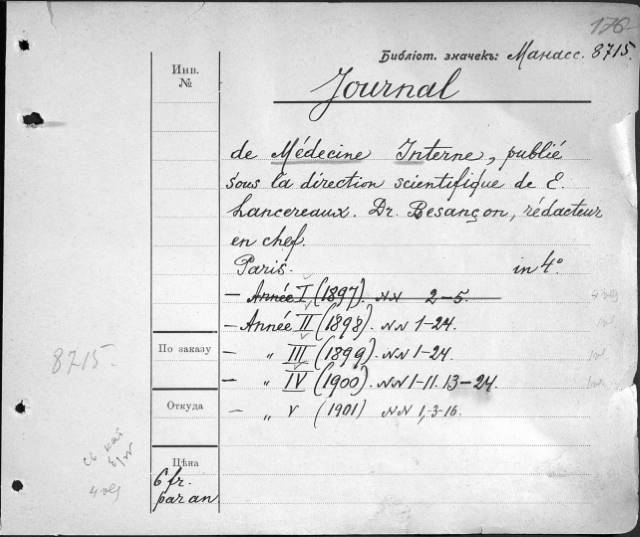 176
Библіот. значекъ: Манасс. 8715.
Инв. №
Journal
de Médecine Interne, publié
sous la direction scientifique de E.
Lancereaux. Dr. Besançon, rédacteur
en chef.
Paris. in 4°
– Année I (1897). NN 2-5.
– Année II (1898). NN 1-24.
8715.
По заказу
– „ III (1899). NN 1-24.
– „ IV (1900). NN 1-11. 13-24.
Откуда
– „ V (1901) NN 1,-3-16.
Цѣна
6 fr.
par an